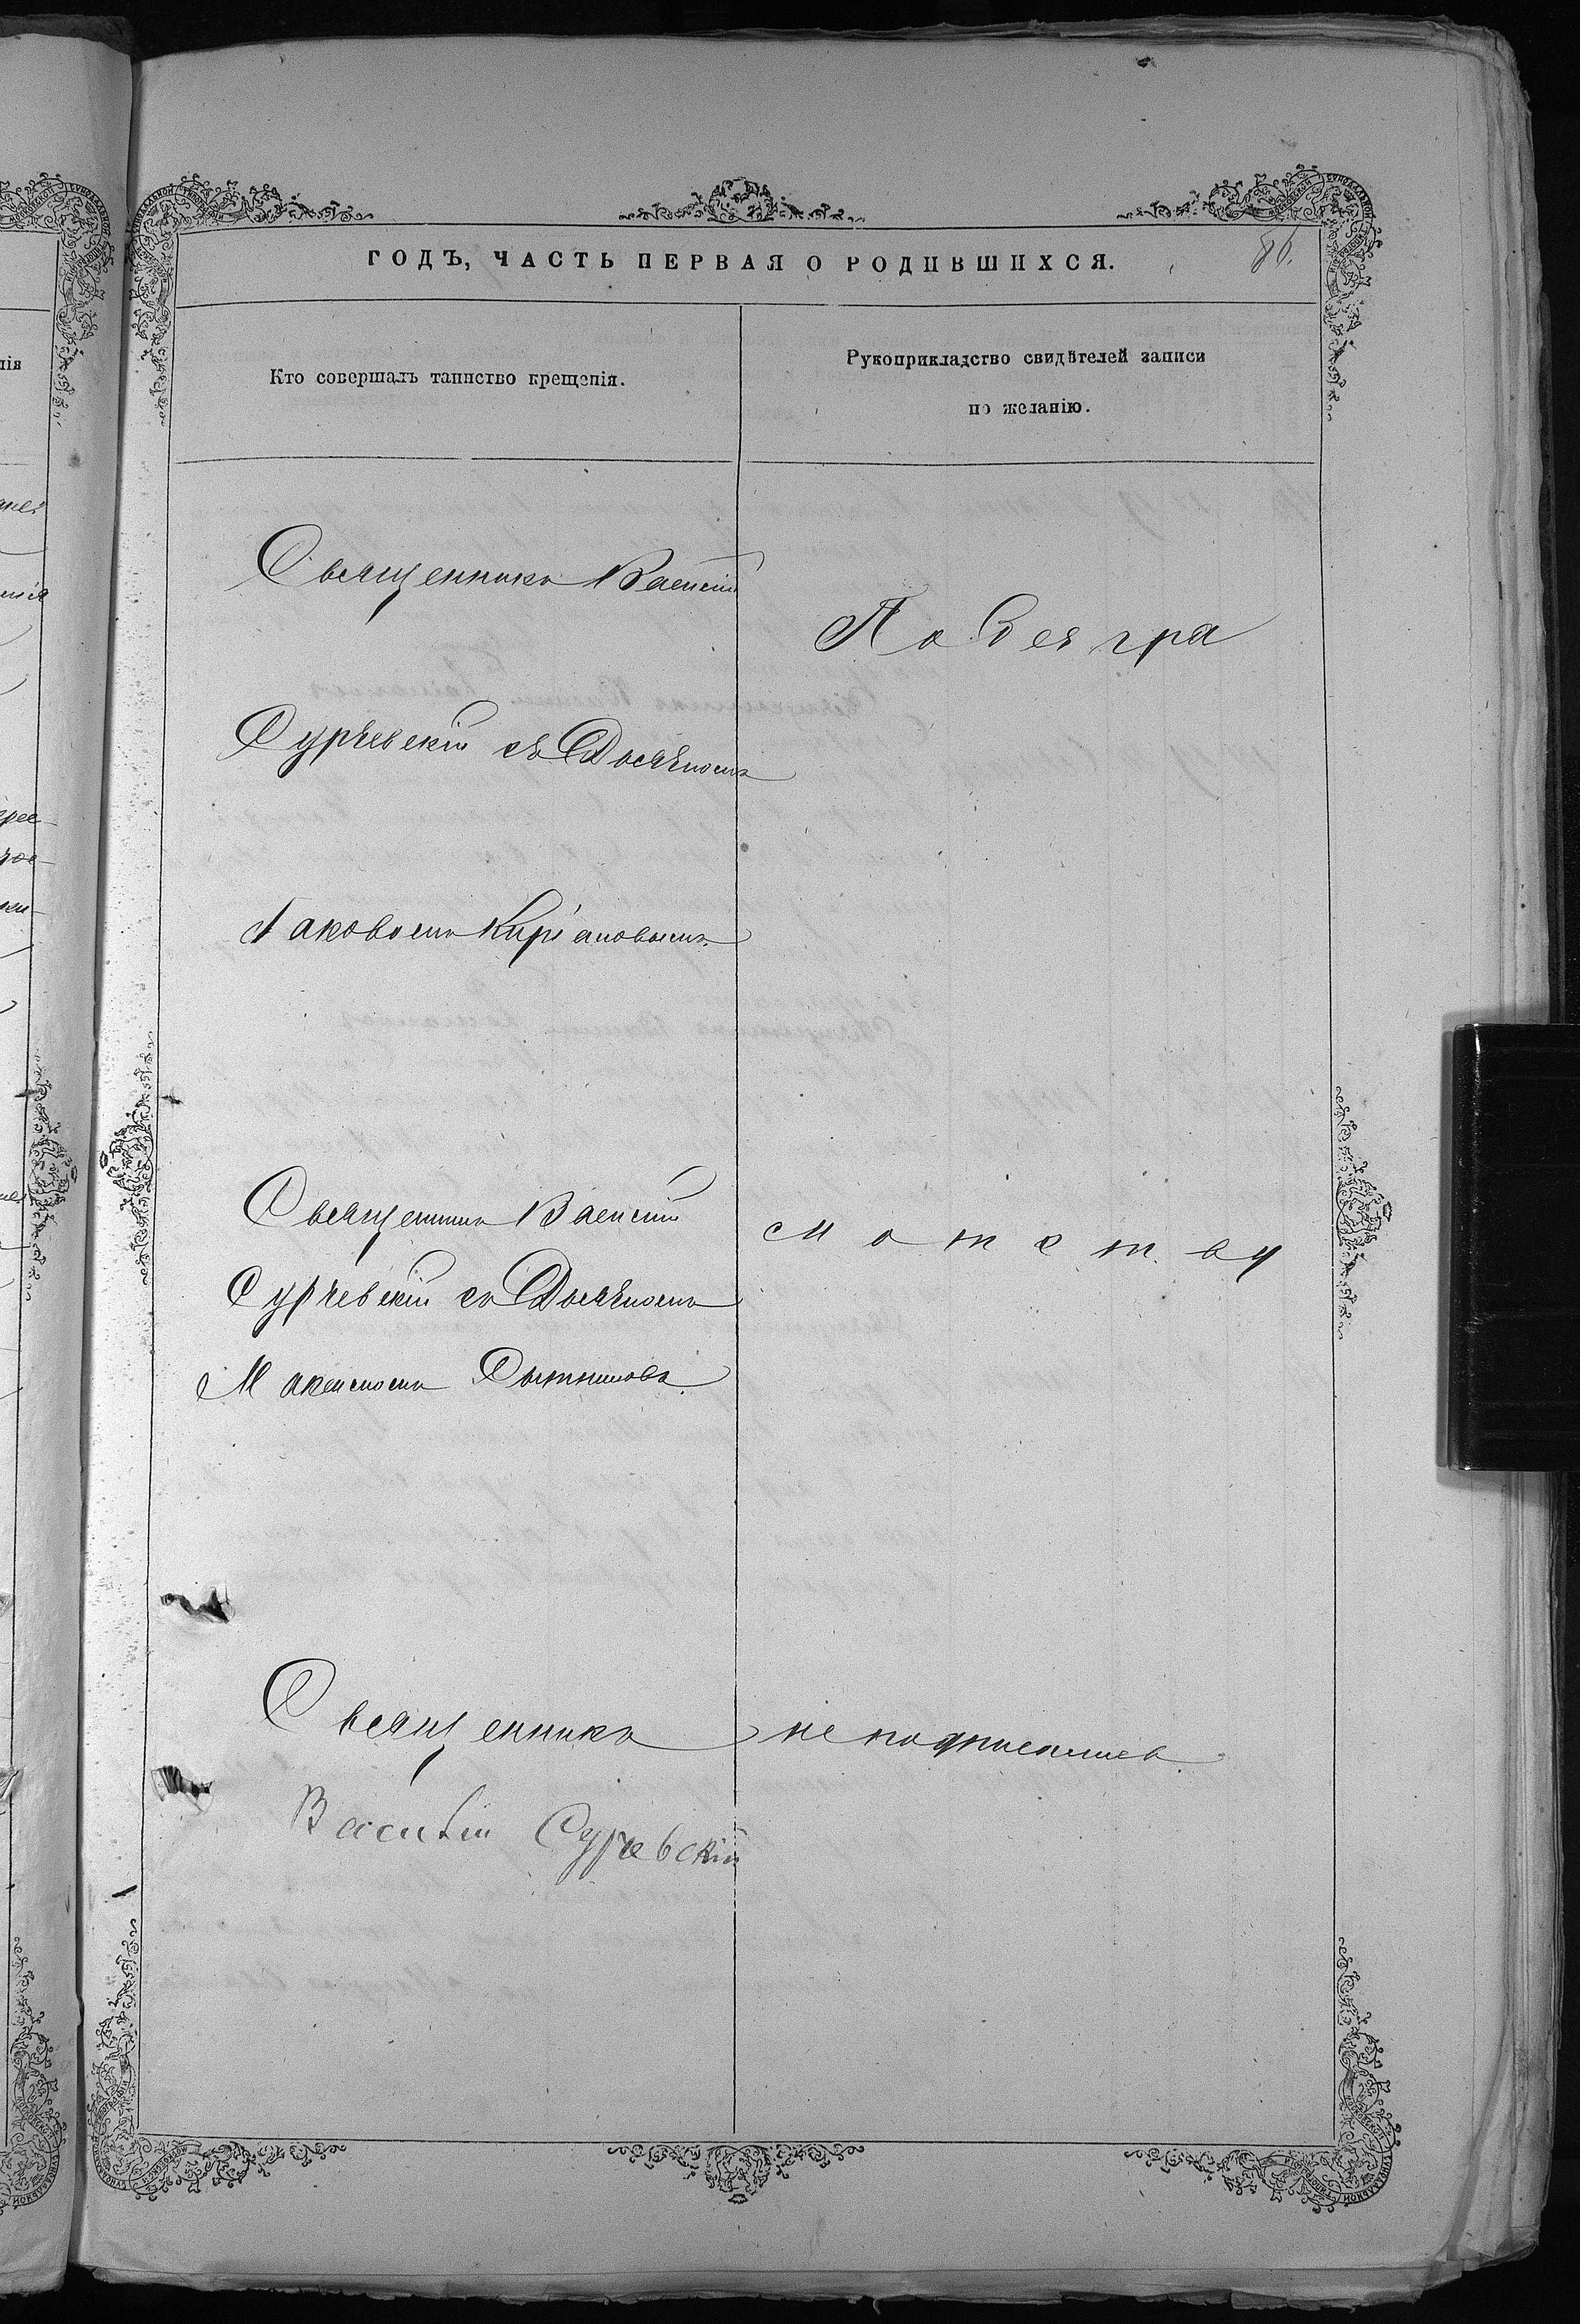 ГОДЪ, ЧАСТЬ ПЕРВАЯ О РОДИВШИХСЯ.
86.
Кто совершалъ таинство крещенія.
Рукоприкладство свидѣтелей записи
по желанію.
Священникъ Василій
Сурчевскій съ Дьячкомъ
Іаковомъ Киріановымъ.
Священникъ Василій
Сурчевскій съ Дьячкомъ
Максимомъ
Священникъ
Василій Сурчевскій
По безгра
мотству
не подписались